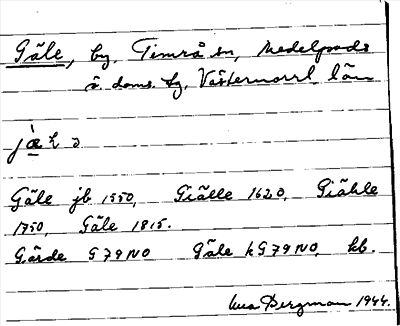 Gäle, by, Timrå sn, Medelpads
ö. doms. tg, Västernorrl. län
Gäle jb 1550, Giälle 1620, Giähle
1750, Gäle 1815.
Gärde G79NO Gäle kG79NO, kb.
Bergman 1944.